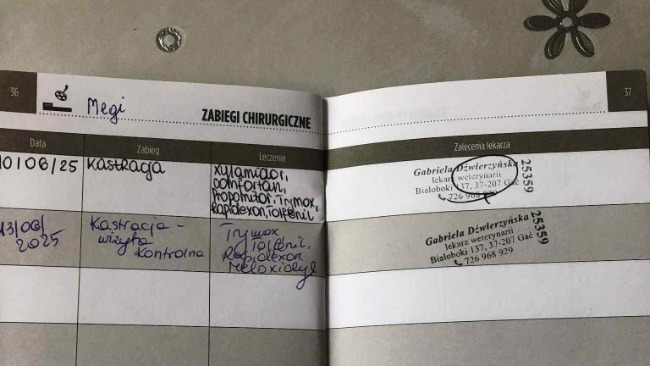 36
Megi
ZABIEGI CHIRURGICZNE
37
Data
Zabieg
Leczenie
Zalecenia lekarza
10/06/25
Kastracja
xylamidor,
comfortan,
Tropomidor, Trymox,
Rapidexon, Tolfenil
Gabriela Dźwierzyńska
lekarz weterynarii
Białoboki 137, 37-207 Gać
726 968 929
25359
13/06/
2025
Kastracja -
wizyta
kontrolna
Trymox
Tolfenil,
Rapidexon
Meloxidyl
Gabriela Dźwierzyńska
lekarz weterynarii
Białoboki 137, 37-207 Gać
726 968 929
25359